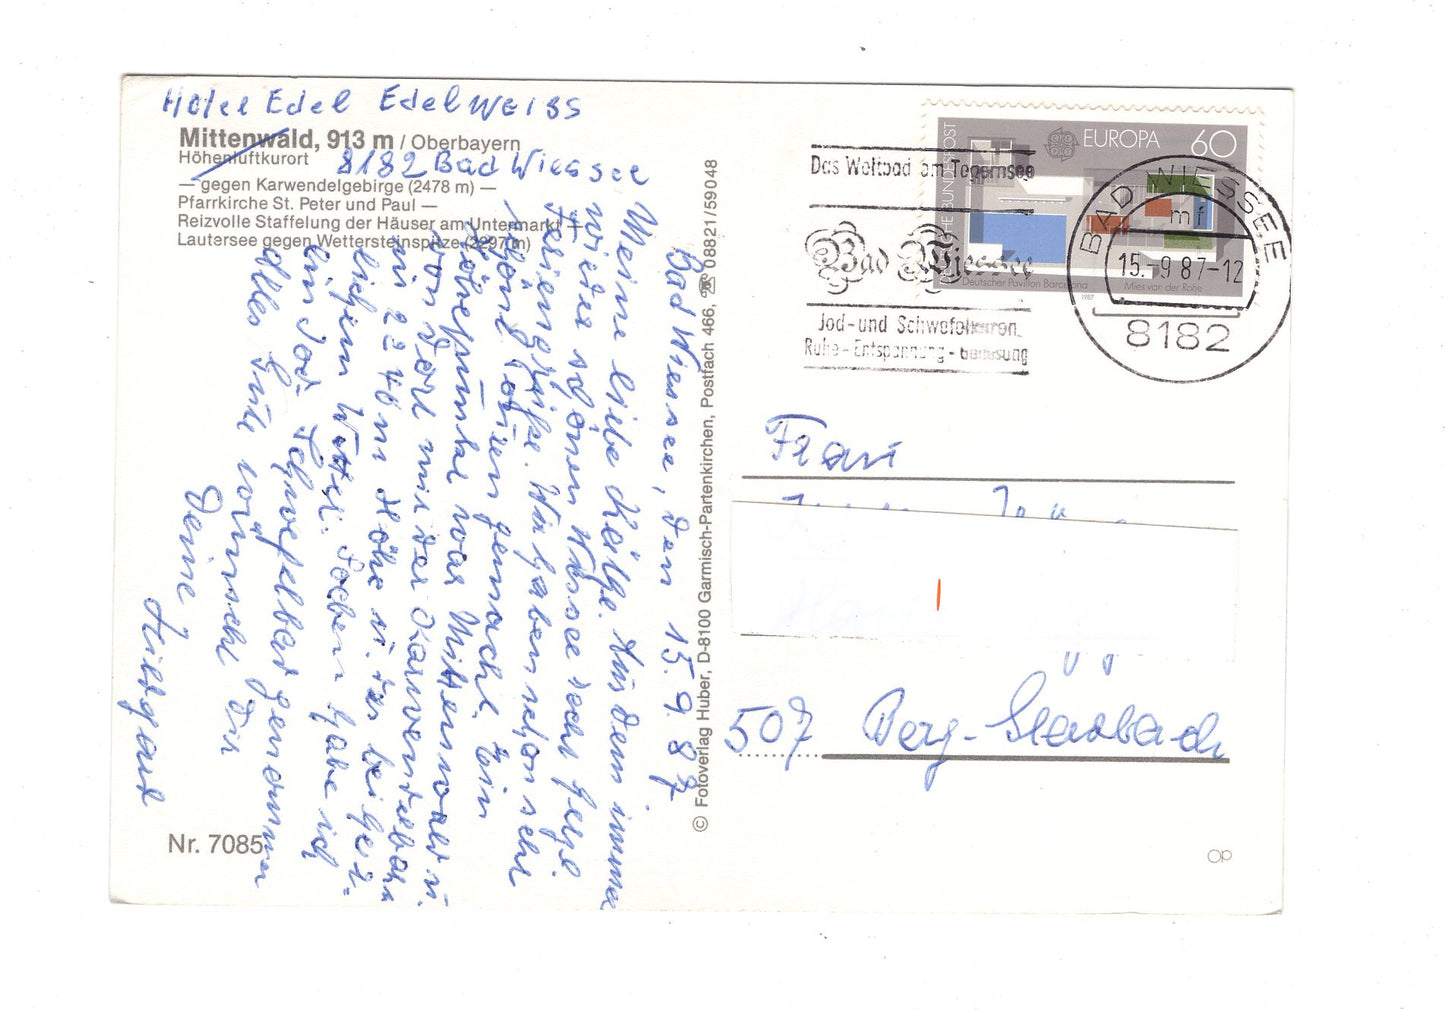 Hotel Edel Edelweiss
Mittenwald, 913 m / Oberbayern
Höhenluftkurort
8182 Bad Wiessee
— gegen Karwendelgebirge (2478 m) —
Pfarrkirche St. Peter und Paul —
Reizvolle Staffelung der Häuser am Untermarkt —
Lautersee gegen Wettersteinspitze (2297 m)
Bad Wiessee, den 15.9.87.
Meine liebe Käthe. Aus dem immer
wieder schönen Wiessee recht herzl.
Feriengrüße. Wir haben schon sehr
schöne Touren gemacht. Ein
Höhepunkt war Mittenwald u.
von dort mit der Karwendelbahn
in 2240 m Höhe u. das bei herr-
lichem Wetter. Soeben habe ich
ein Jod-Schwefelbad genommen
Alles Gute wünscht Dir
Deine Hildgard
Nr. 7085
© Fotoverlag Huber, D-8100 Garmisch-Partenkirchen, Postfach 466, ☎ 08821/59048
Das Weltbad am Tegernsee
Bad Wiessee
Jod- und Schwefelquellen
Ruhe - Entspannung - Genesung
DEUTSCHE BUNDESPOST
EUROPA 60
Deutscher Pavillon Barcelona
Mies van der Rohe
1987
BAD WIESSEE
mf
15.-9.87-12
8182
Frau
507 Berg.-Gladbach